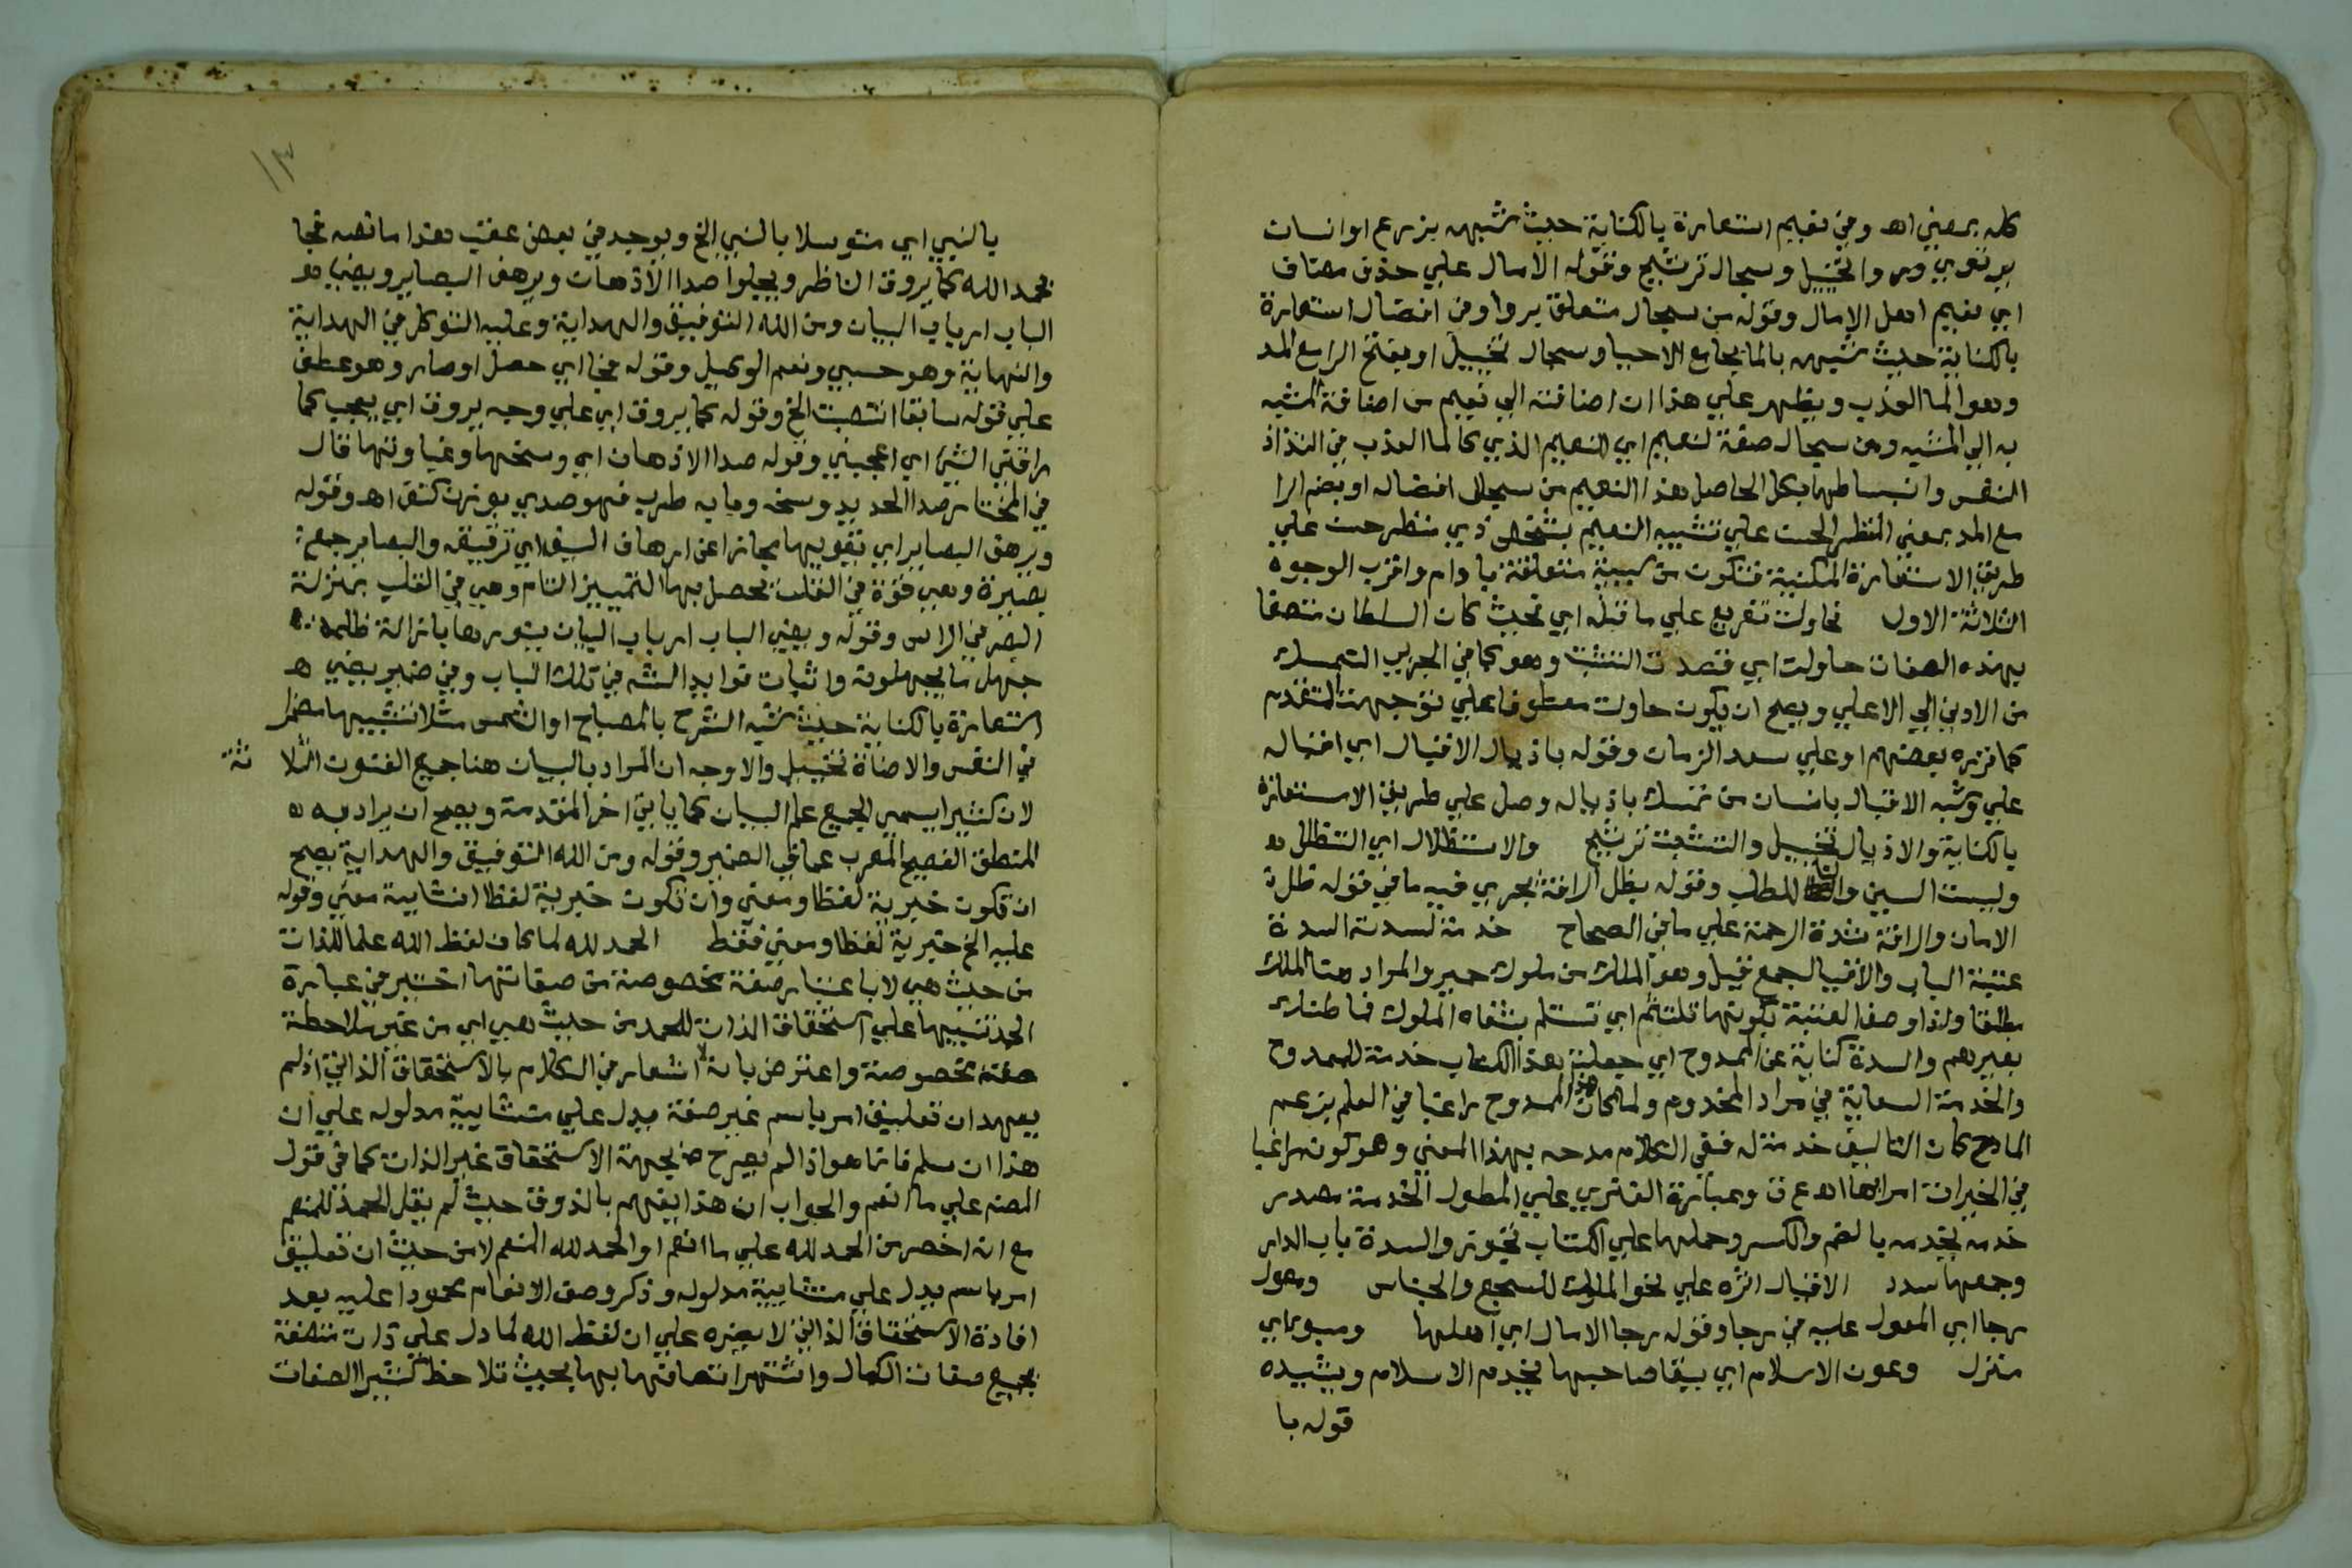 كله بمعني اه وفي نعيم استعارة بالكناية حيث شبهه بزرع او انسان
يرتوي وروا تخييل وسجال ترشيح وقوله الامال علي حذف مضاف
اي نعيم اهل الامال وقوله من سجال متعلق بروا وفي افضال استعارة
بالكناية حيث شبهه بالما بجامع الاحيا وسجال تخييل او بفتح الرا مع المد
وهو الما العذب ويظهر علي هذا ان اضافته الي نعيم من اضافة المشبه
به الي المشبه ومن سجال صفة لنعيم اي النعيم الذي كالما العذب في التذاذ
النفس وانبساطها بكل الحاصل هذا النعيم من سجال افضاله او بضم الرا
مع المد بمعني المنظر الحسن علي تشبيه النعيم بشخص ذي منظر حسن علي
طريق الاستعارة المكنية فتكون من سببية متعلقة بادام واقرب الوجوه
الثلاثة الاول فحاولت تفريع علي ما قبله اي فحيث كان السلطان متصفا
بهذه الصفات حاولت اي قصدت التشبث وهو كما في الجربي التمسك
من الادني الي الاعلي ويصح ان يكون حاولت معطوفا علي توجهت المتقدم
كما قرره بعضهم او علي سعد الزمان وقوله باذيال الاقبال اي اقباله
علي وشبه الاقبال بانسان من تمسك باذياله وصل علي طريق الاستعارة
بالكناية والاذيال تخييل والتشبث ترشيح والاستظلال اي التظلل
وليست السين والتا للطلب وقوله بظل الرافة يجري فيه ما في قوله ظل
الامان والرافة شدة الرحمة علي ما في الصحاح خدمة لسدته السدة
عتبة الباب والاقيال جمع قيل وهو الملك من ملوك حمير والمراد هنا الملك
مطلقا ولذا وصف العتبة بكونها تلتثم اي تستلم بشفاه الملوك فما ظنك
بغيرهم والسدة كناية عن الممدوح اي جعلت هذا الكتاب خدمة للممدوح
والخدمة السعاية في مراد المخدوم ولما كان هذا الممدوح راغبا في العلم بزعم
المادح كان التاليف خدمة له ففي الكلام مدحه بهذا المعني وهو كونه راغبا
في الخيرات امرا بها اه ع ق وعبارة الفنري علي المطول الخدمة مصدر
خدمه يخدمه بالضم والكسر وحملها علي الكتاب تجوز والسدة باب الدار
وجمعها سدد الاقيال اثره علي نحو الملوك للسجع والجناس ومعول
رجا اي المعول عليه في رجا وقوله رجا الامال اي اهلها ومبوء اي
منزل وعون الاسلام اي بيقا صاحبها يخدم الاسلام ويشيده
قوله با
١٣
بالنبي اي متوسلا بالنبي الخ ويوجد في بعض عقب هذا ما نصه فجا
بحمد الله كما يروق الناظر ويجلوا صدا الاذهان ويرهف البصاير ويضي
الباب ارباب البيان ومن الله التوفيق والهداية وعليه التوكل في البداية
والنهاية وهو حسبي ونعم الوكيل وقوله فجا اي حصل او صار وهو عطف
علي قوله سابقا انتصبت الخ وقوله كما يروق اي علي وجه يروق اي يعجب كما
راقني الشي اي اعجبني وقوله صدا الاذهان اي وسخها وغباوتها قال
في المختار صدا الحديد وسخه وبابه طرب فهو صدي بوزن كتف اه وقوله
ويرهف البصاير اي يقويها مجازا عن ارهاف السيف اي ترقيقه والبصاير جمع
بصيرة وهي قوة في القلب يحصل بها التمييز التام وهي في القلب بمنزلة
البصر في الراس وقوله ويضي الباب ارباب البيان بنورها بازالة ظلمة
جهل ما يجهلونه واثبات فوايد الشه في تلك الباب وفي ضمير يضي
استعارة بالكناية حيث شبه الشرح بالمصباح او الشمس مثلا تشبيها مضمرا
في النفس والاضاة تخييل والاوجه ان المراد بالبيان هنا جميع الفنون الثلاثة
لان كثيرا يسمي الجميع علم البيان كما ياتي اخر المقدمة ويصح ان يراد به
المنطق الفصيح المعرب عما في الضمير وقوله ومن الله التوفيق والهداية يصح
ان تكون خبرية لفظا ومعني وان تكون خبرية لفظا انشايية معني وقوله
عليه الخ خبرية لفظا ومعني فقط الحمد لله لما كان لفظ الله علما للذات
من حيث هي لا باعتبار صفة مخصوصة من صفاتها اختير في عبارة
الحمد تنبيها علي استحقاق الذات للحمد من حيث هي اي من غير ملاحظة
صفة مخصوصة واعترض بانه لا اشعار في الكلام بالاستحقاق الذاتي اذ لم
يعهد ان تعليق امر باسم غير صفة يدل علي منشايية مدلوله علي ان
هذا ان سلم فانما هو اذا لم يصرح بجهة الاستحقاق غير الذات كما في قول
المصنف علي ما انعم والجواب ان هذا يفهم بالذوق حيث لم يقل الحمد للمنعم
مع انه اخصر من الحمد لله علي ما انعم او الحمد لله المنعم لا من حيث ان تعليق
امر باسم يدل علي منشايية مدلوله وذكر وصف الانعام محمودا عليه بعد
افادة الاستحقاق الذاتي لا يضره علي ان لفظ الله لما دل علي ذات متصفة
بجميع صفات الكمال واشتهر اتصافها بها بحيث تلاحظ كثيرا الصفات